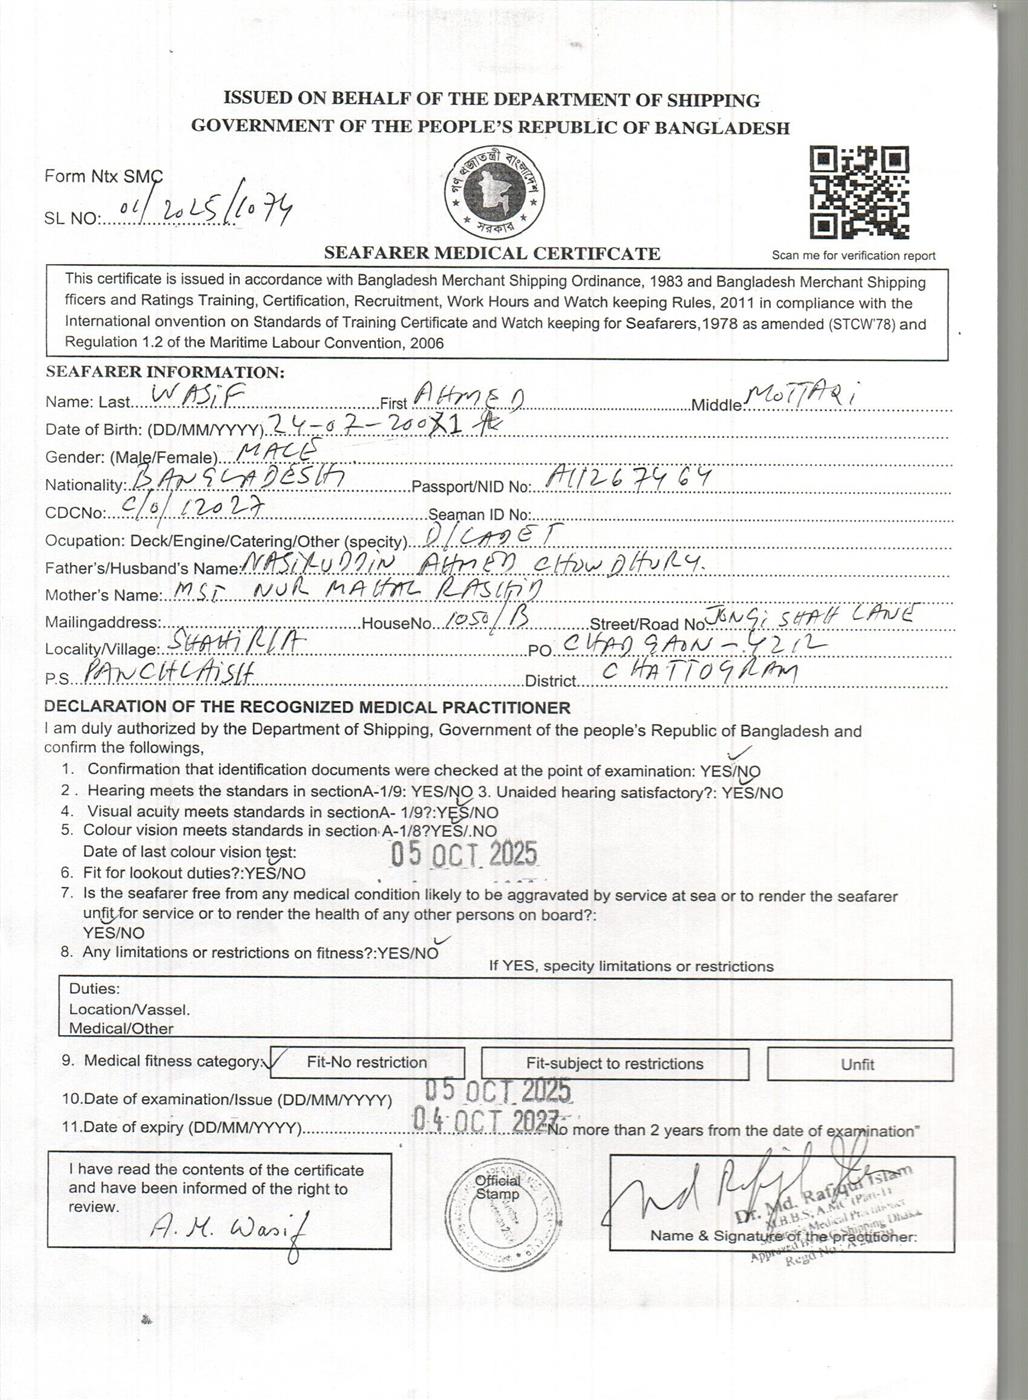 ISSUED ON BEHALF OF THE DEPARTMENT OF SHIPPING
GOVERNMENT OF THE PEOPLE'S REPUBLIC OF BANGLADESH
Form Ntx SMC
SL NO:01/2025/1074
গণপ্রজাতন্ত্রী বাংলাদেশ
সরকার
Scan me for verification report
SEAFARER MEDICAL CERTIFCATE
This certificate is issued in accordance with Bangladesh Merchant Shipping Ordinance, 1983 and Bangladesh Merchant Shipping
fficers and Ratings Training, Certification, Recruitment, Work Hours and Watch keeping Rules, 2011 in compliance with the
International onvention on Standards of Training Certificate and Watch keeping for Seafarers,1978 as amended (STCW'78) and
Regulation 1.2 of the Maritime Labour Convention, 2006
SEAFARER INFORMATION:
Name: Last WASIF First AHMED Middle MOTTAQI
Date of Birth: (DD/MM/YYYY) 24-07-2001
Gender: (Male/Female) MALE
Nationality: BANGLADESH Passport/NID No: A11267464
CDCNo: C/O/12027 Seaman ID No:
Ocupation: Deck/Engine/Catering/Other (specify) D/CADET
Father's/Husband's Name: NASIRUDDIN AHMED CHOWDHURY.
Mother's Name: MST NUR MAHAL RASHID
Mailingaddress: HouseNo 1050/B Street/Road No JONGI SHAH LANE
Locality/Village: SHAHIRIA PO CHADGAON-4212
P.S. PANCHLAISH District CHATTOGRAM
DECLARATION OF THE RECOGNIZED MEDICAL PRACTITIONER
I am duly authorized by the Department of Shipping, Government of the people's Republic of Bangladesh and
confirm the followings,
1. Confirmation that identification documents were checked at the point of examination: YES/NO
2 . Hearing meets the standars in sectionA-1/9: YES/NO 3. Unaided hearing satisfactory?: YES/NO
4. Visual acuity meets standards in sectionA- 1/9?:YES/NO
5. Colour vision meets standards in section A-1/8?YES/.NO
Date of last colour vision test: 05 OCT 2025
6. Fit for lookout duties?:YES/NO
7. Is the seafarer free from any medical condition likely to be aggravated by service at sea or to render the seafarer
unfit for service or to render the health of any other persons on board?:
YES/NO
8. Any limitations or restrictions on fitness?:YES/NO
If YES, specity limitations or restrictions
Duties:
Location/Vassel.
Medical/Other
9. Medical fitness category: Fit-No restriction Fit-subject to restrictions Unfit
10.Date of examination/Issue (DD/MM/YYYY) 05 OCT 2025
11.Date of expiry (DD/MM/YYYY) 04 OCT 2027 No more than 2 years from the date of examination"
I have read the contents of the certificate
and have been informed of the right to
review.
A. M. Wasif
Official
Stamp
Dr. Md. Rafiqul Islam
M.B.B.S, A.M.C (Part-1)
Name & Signature of the practitioner: